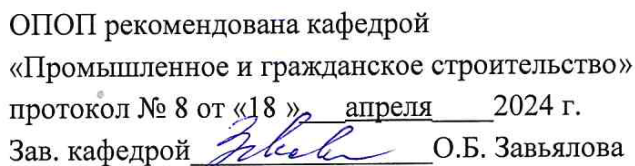 ОПОП рекомендована кафедрой
«Промышленное и гражданское строительство»
протокол № 8 от «18 » апреля 2024 г.
Зав. кафедрой О.Б. Завьялова